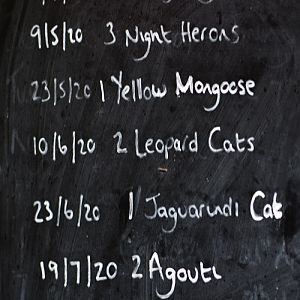 9/5/20 3 Night Herons
23/5/20 1 Yellow Mongoose
10/6/20 2 Leopard Cats
23/6/20 1 Jaguarundi Cat
19/7/20 2 Agouti